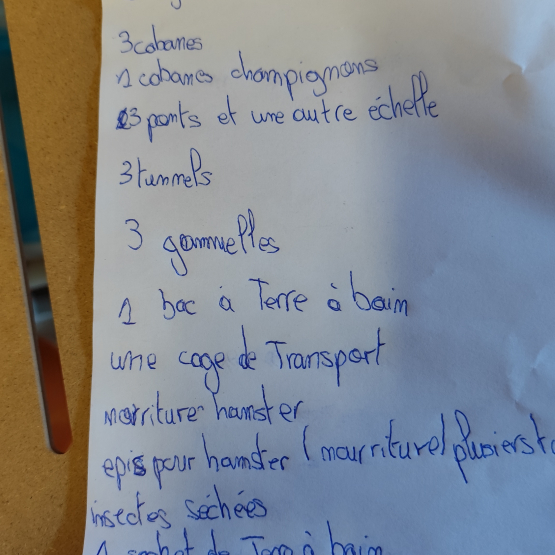 3 cabanes
1 cabanes champignons
3 ponts et une autre échelle
3 tunnels
3 gammelles
1 bac à Terre à bain
une cage de Transport
norriture hamster
epis pour hamster (nourriture) plusiers
insectes séchées
1 sachet de Terre à bain